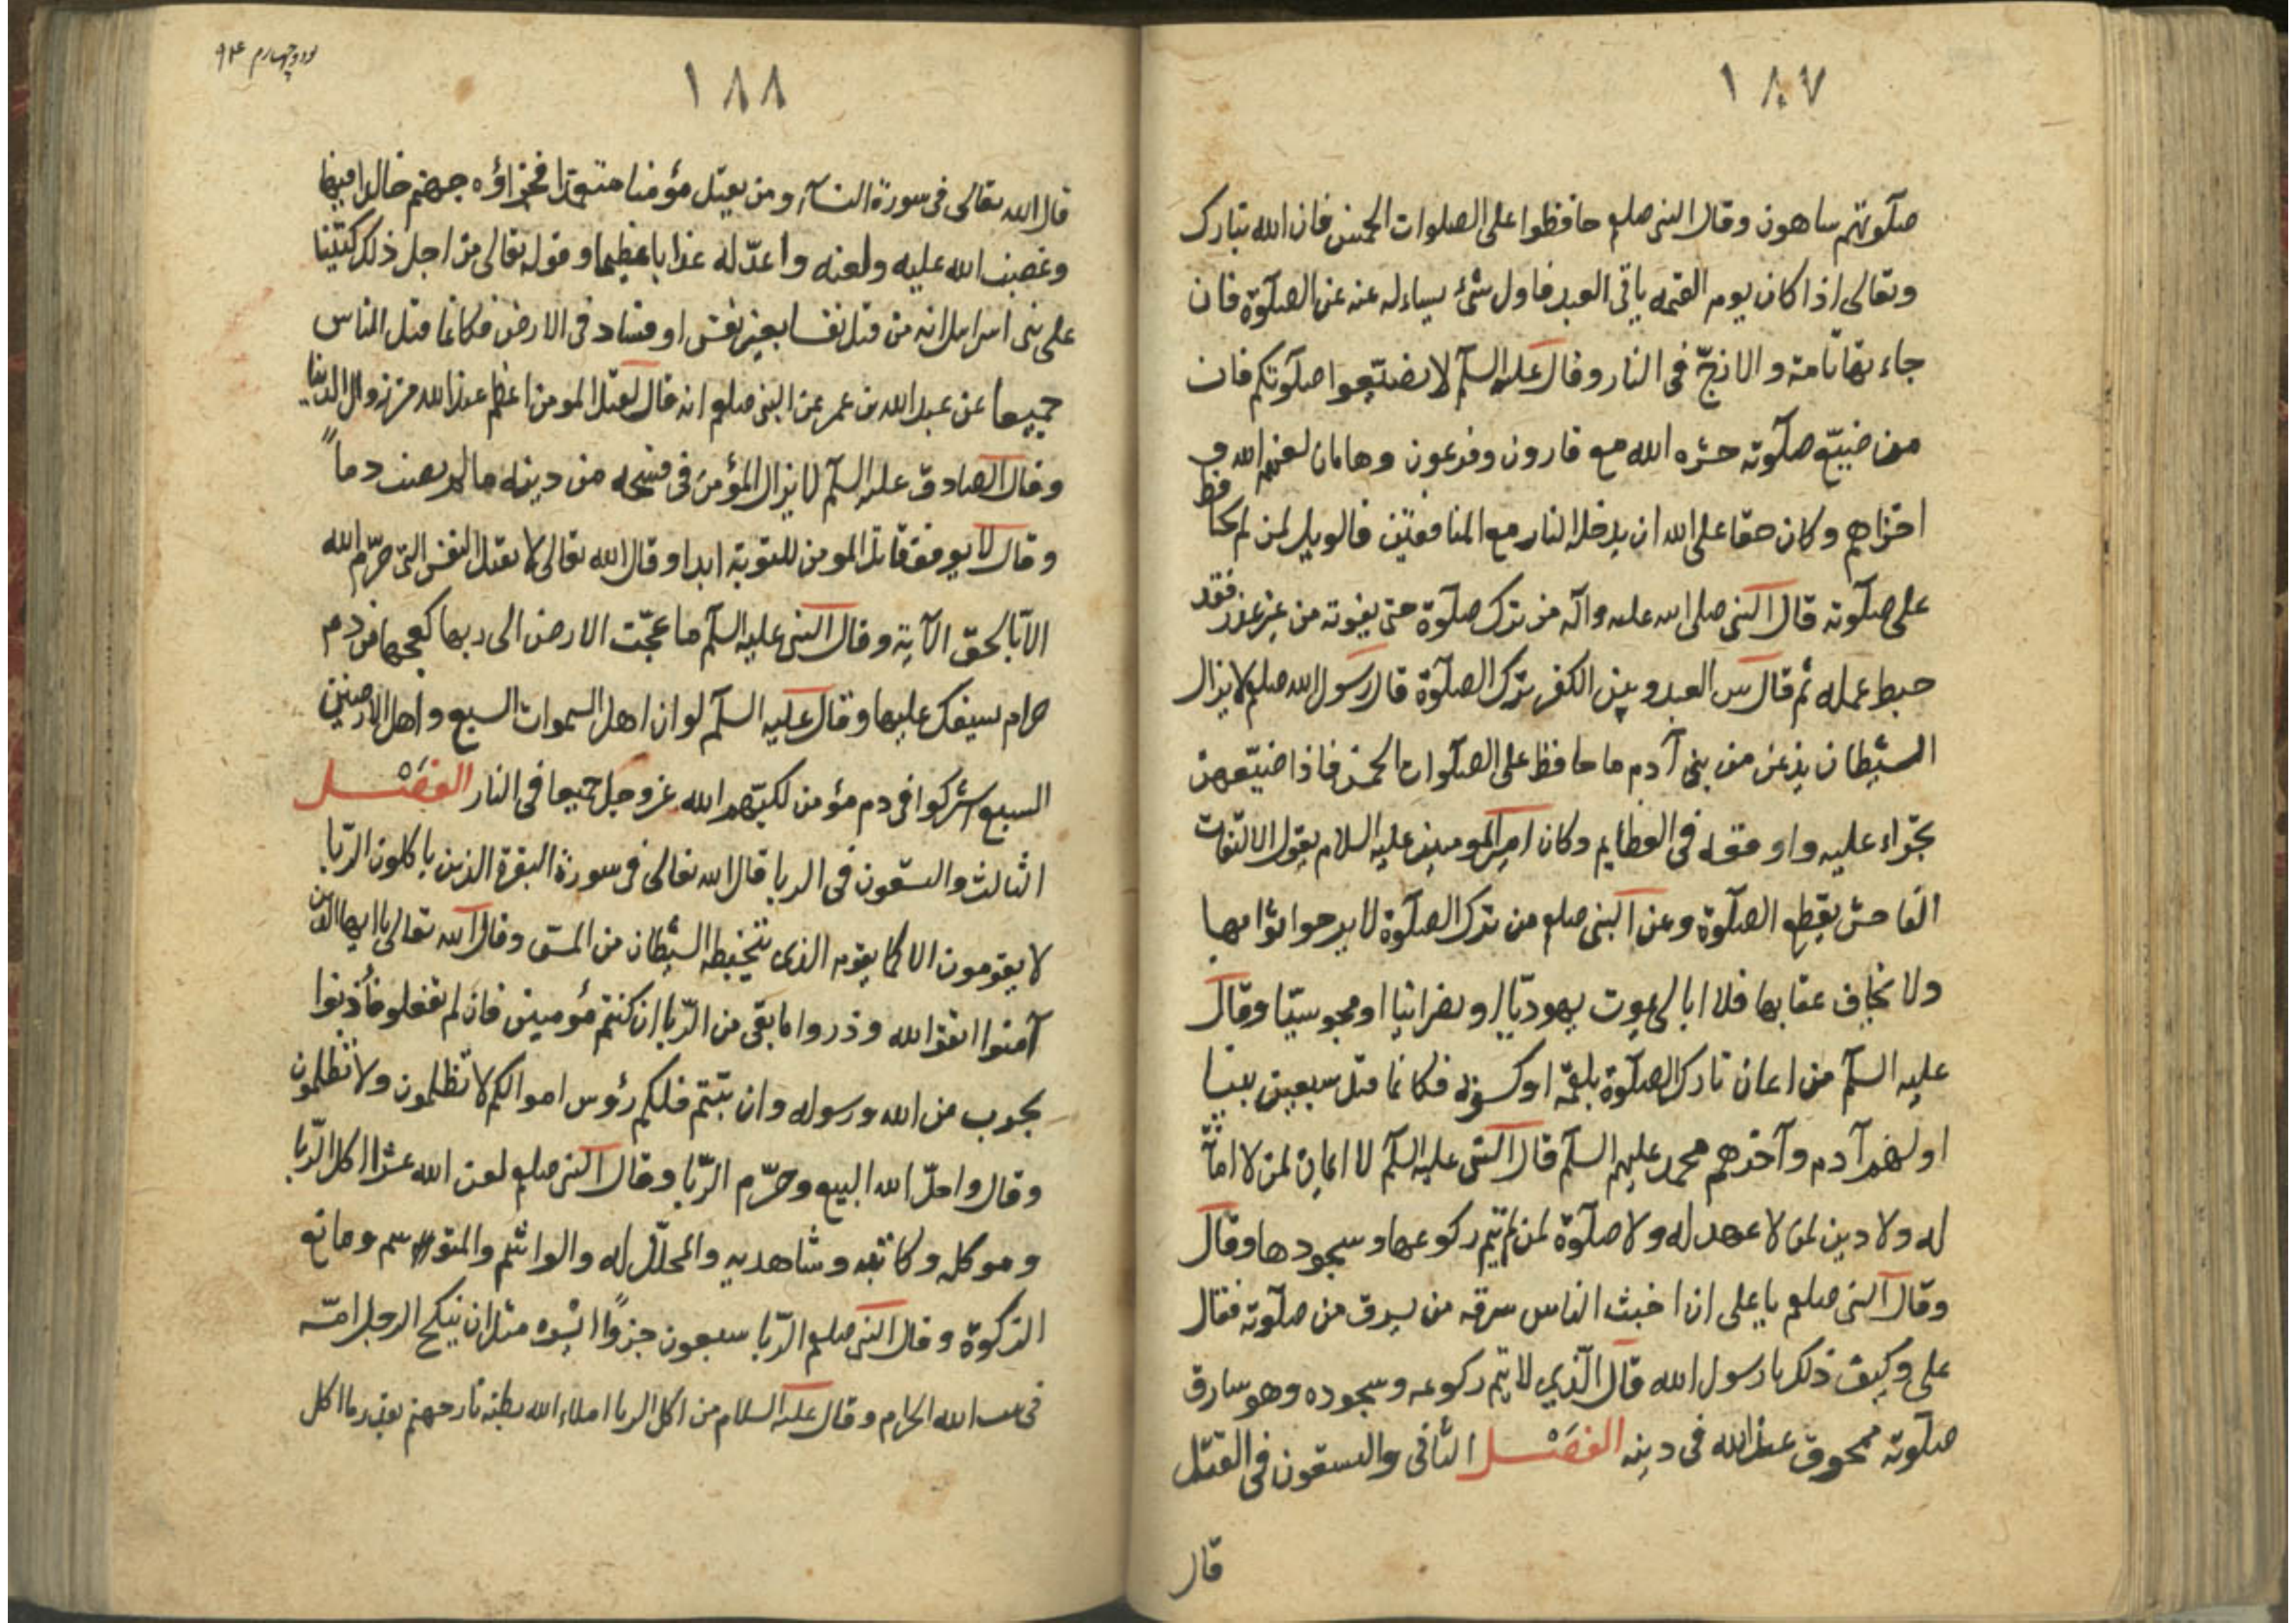 ١٨٧
صلوتهم ساهون وقال النبى صلعم حافظوا على الصلوات الخمس فان الله تبارك
وتعالى اذا كان يوم القيمه ياتى العبد فاول شئ يساءله عنه عن الصلوة فان
جاء بها تامة والا زجّ فى النار وقال عليه السلم لا تضيّعوا صلوتكم فان
من ضيّع صلوته حشره الله مع قارون وفرعون وهامان لعنهم الله و
اخزاهم وكان حقا على الله ان يدخله النار مع المنافقين فالويل لمن لم يحافظ
على صلوته قال النبى صلى الله عليه وآله من ترك صلوة حتى يفوته من غير عذر فقد
حبط عمله ثم قال بين العبد وبين الكفر ترك الصلوة قال رسول الله صلعم لا يزال
الشيطان يذعر من بنى آدم ما حافظ على الصلوات الخمس فاذا ضيّعهن
تجرّاء عليه واوقعه فى العظايم وكان امير المومنين عليه السلام يقول الالتفات
الفاحش يقطع الصلوة وعن النبى صلعم من ترك الصلوة لا يرجوا ثوابها
ولا يخاف عقابها فلا ابالى يموت يهوديّا او نصرانيا او مجوسيّا وقال
عليه السلم من اعان تارك الصلوة بلقمة او كسوة فكانما قتل سبعين نبيا
اولهم آدم وآخرهم محمد عليهم السلم قال النبى عليه السلم لا ايمان لمن لا امانة
له ولا دين لمن لا عهد له ولا صلوة لمن لم يتم ركوعها وسجودها وقال
وقال النبى صلعم يا على ان اخبث الناس سرقه من يسرق من صلوته فقال
على وكيف ذلك يا رسول الله قال الّذي لا يتم ركوعه وسجوده وهو سارق
صلوته ممحوق عند الله فى دينه الفصل الثانى والسبعون فى القتل
قال
نود وچهارم ٩۴
١٨٨
قال الله تعالى فى سورة النساء ومن يقتل مؤمنا متعمّدا فجزاؤه جهنم خالدا فيها
وغضب الله عليه ولعنه واعدّ له عذابا عظيما وقوله تعالى من اجل ذلك كتبنا
على بنى اسرايل انه من قتل نفسا بغير نفس او فساد فى الارض فكانما قتل الناس
جميعا عن عبد الله بن عمر عن النبى صلعم انه قال لقتل المومن اعظم عند الله من زوال الدنيا
وقال الصادق عليه السلم لا يزال المؤمن فى فسحه من دينه ما لم يصب دماً
وقال لا يوفق قاتل المومن للتوبة ابدا وقال الله تعالى لا تقتل النفس التى حرّم الله
الا بالحق الآية وقال النبى عليه السلم ما عجّت الارض الى ربها كعجها من دم
حرام يسفك عليها وقال عليه السلم لو ان اهل السموات السبع واهل الارضين
السبع اشركوا فى دم مؤمن لكبّهم الله عز وجل جميعا فى النار الفصل
الثالث والسبعون فى الربا قال الله تعالى فى سورة البقرة الذين ياكلون الرّبا
لا يقومون الا كما يقوم الذى يتخبطه الشيطان من المس وقال الله تعالى يا ايها الذين
آمنوا اتقوا الله وذروا ما بقى من الرّبا ان كنتم مؤمنين فان لم تفعلو فأذنوا
بحرب من الله ورسوله وان تبتم فلكم رؤس اموالكم لا تظلمون ولا تظلمون
وقال واحلّ الله البيع وحرّم الرّبا وقال النبى صلعم لعن الله عشرا اكل الرّبا
وموكله وكاتبه وشاهديه والمحلّل له والواشم والمتوسم ومانع
الزكوة وقال النبى صلعم الرّبا سبعون جزوًا ايسره مثل ان ينكح الرجل امّه
فى بيت الله الحرام وقال عليه السلام من اكل الربا املاء الله بطنه نار جهنم بقدر ما اكل